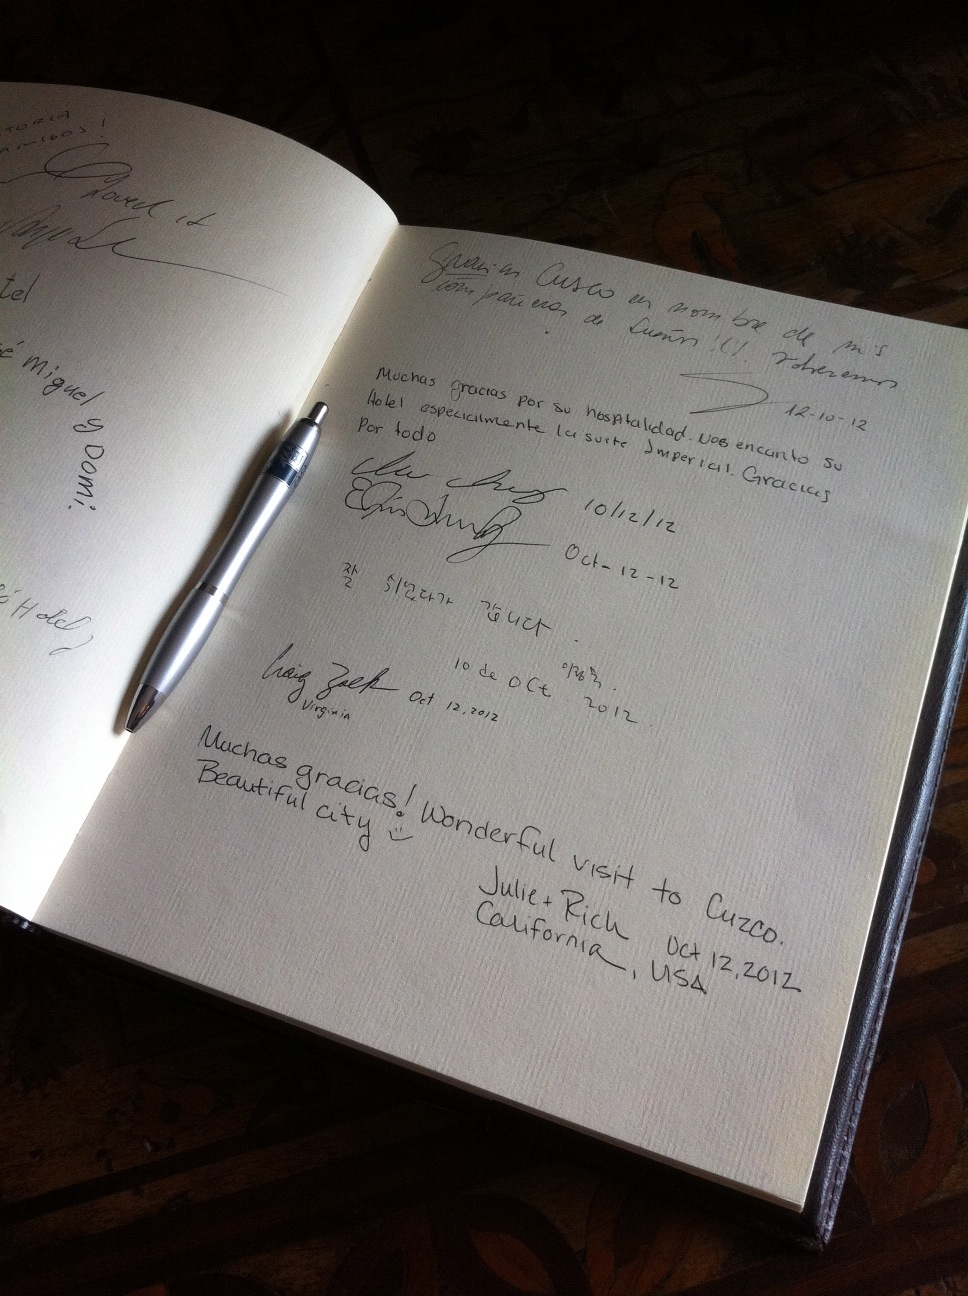 TORIA
AMIGOS!
Loved it
tel
sé Miguel y Domi.
Hotel,
Gracias Cusco en nombre de mis
compañeros de sueños!!! Volveremos
12-10-12
Muchas gracias por su hospitalidad. Nos encanto su
Hotel especialmente la suite Imperial. Gracias
por todo
10/12/12
Oct-12-12
잘 쉬었다가 갑니다.
10 de oct 2012.
Craig
Oct 12, 2012
Virginia
Muchas gracias! Wonderful visit to Cuzco.
Beautiful city
Julie + Rich Oct 12, 2012
California, USA